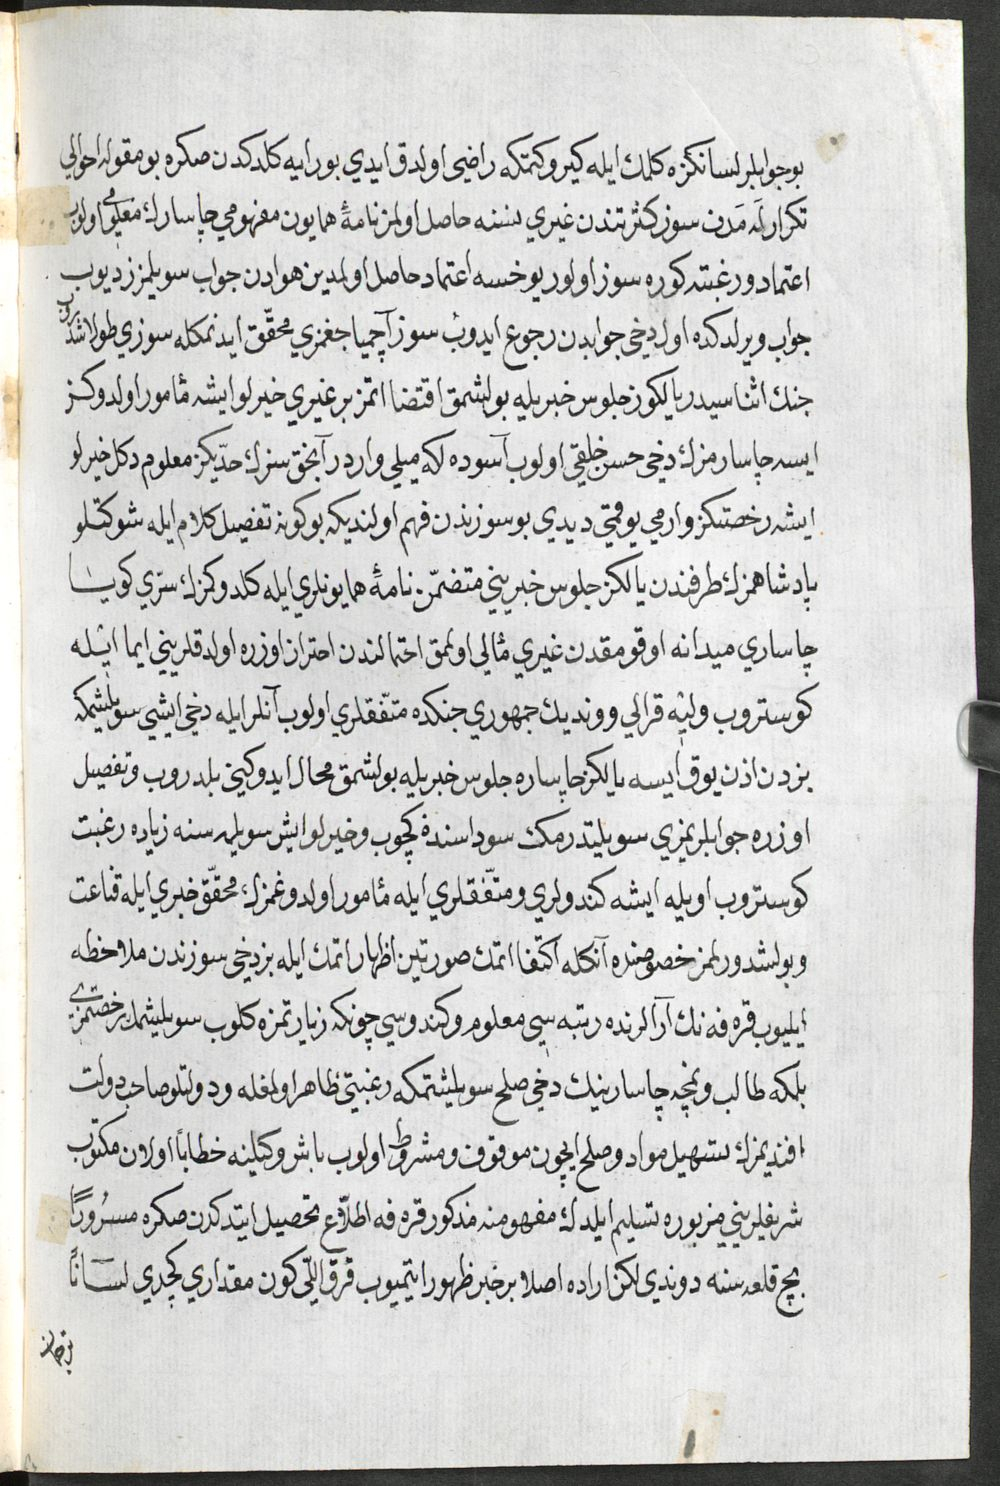 بو جوابلر لسانكزه كلمك ايله كيرو كتمكه راضى اولدق ايدي بورايه كلدكدن صكره بو مقوله احوالي
تكرارلَه مَدن سوز كثرتندن غيري نسنه حاصل اولمز نامۀ همايون مفهومي چاسارك معلومي اولوب
اعتماد ورغبتنه كوره سوز اولور يوخسه اعتماد حاصل اولمدين هوادن جواب سويلمزز ديوب
جواب ويرلدكده اول دخي جوابدن رجوع ايدوب سوز آچميا جغمزي محقّق ايدنمكله سوزي طولاشدروب
جنك اثناسيدر يالكوز جلوس خبريله بولشمق اقتضا اتمز بر غيري خيرلو ايشه مأمور اولدوكز
ايسه چاسارمزك دخي حسن خلقي اولوب آسوده لكه ميلي واردر آنجق سزك حدّيكز معلوم دكل خيرلو
ايشه رخصتكز وارمي يوقمي ديدي بو سوزندن فهم اولنديكه بو كونه تفصيل كلام ايله شوكتلو
پادشاهمزك طرفندن يالكز جلوس خبريني متضمّن نامۀ همايونلري ايله كلدوكمزك سرّي كويا
چاساري ميدانه اوقومقدن غيري مألي اولمق احتمالندن احتراز اوزره اولدقلريني ايما ايله
كوستروب وليه قرالي وونديك جمهوري جنكده متّفقلري اولوب آنلر ايله دخي ايشي سويلشمكه
بزدن اذن يوق ايسه يالكز چاساره جلوس خبريله بولشمق محال ايدوكين بلدروب وتفصيل
اوزره جوابلريمزي سويلتدرمك سوداسنده كچوب وخيرلو ايش سويلمه سنه زياده رغبت
كوستروب اويله ايشه كندولري ومتّفقلري ايله مأمور اولدوغمزك محقّق خبري ايله قناعت
وبولشدورلمز خصوصنده آنكله اكتفا اتمك صورتين اظهار اتمك ايله بز دخي سوزندن ملاحظه
ايليوب قره فه نك آرالرنده رتبه سي معلوم وكندوسي چونكه زيارتمزه كلوب سويلشمك بر خصتمزي
بلكه طالب ونمچه چاسارينك دخي صلح سويلشتمكه رغبتي ظاهر اولمغله ودولتلو صاحب دولت
افنديمزك تسهيل مواد وصلح ايچون موقوف ومشروط اولوب باش وكيلنه خطاباً اولان مكتوب
شريفلريني مزبوره تسليم ايلدك مفهومنه مذكور قره فه اطلاع تحصيل ايتدكدن صكره مسرُورًا
بچ قلعه سنه دوندي لكن اراده اصلا بر خبر ظهور ايتميوب قرق اللّي كون مقداري كچدي لسانًا